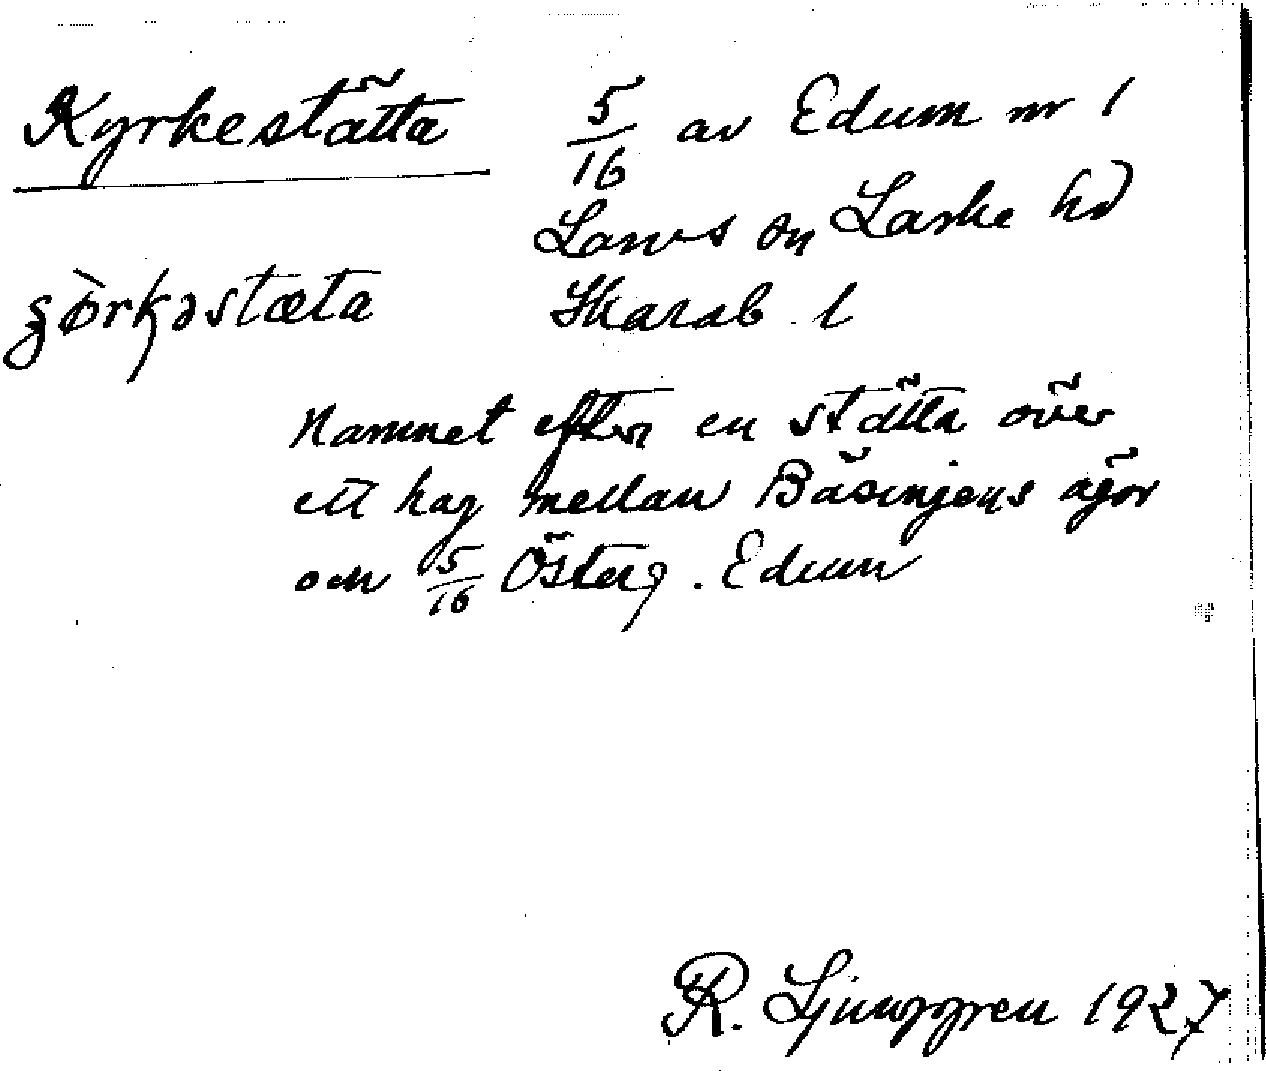 Kyrkestätta 5/16 av Edum nr 1
Larvs sn Laske hd
Skarab. l
Namnet efter en stätta över
ett hag mellan Bäsinjens ägor
och 5/16 Österg. Edum
R. Ljunggren 1927